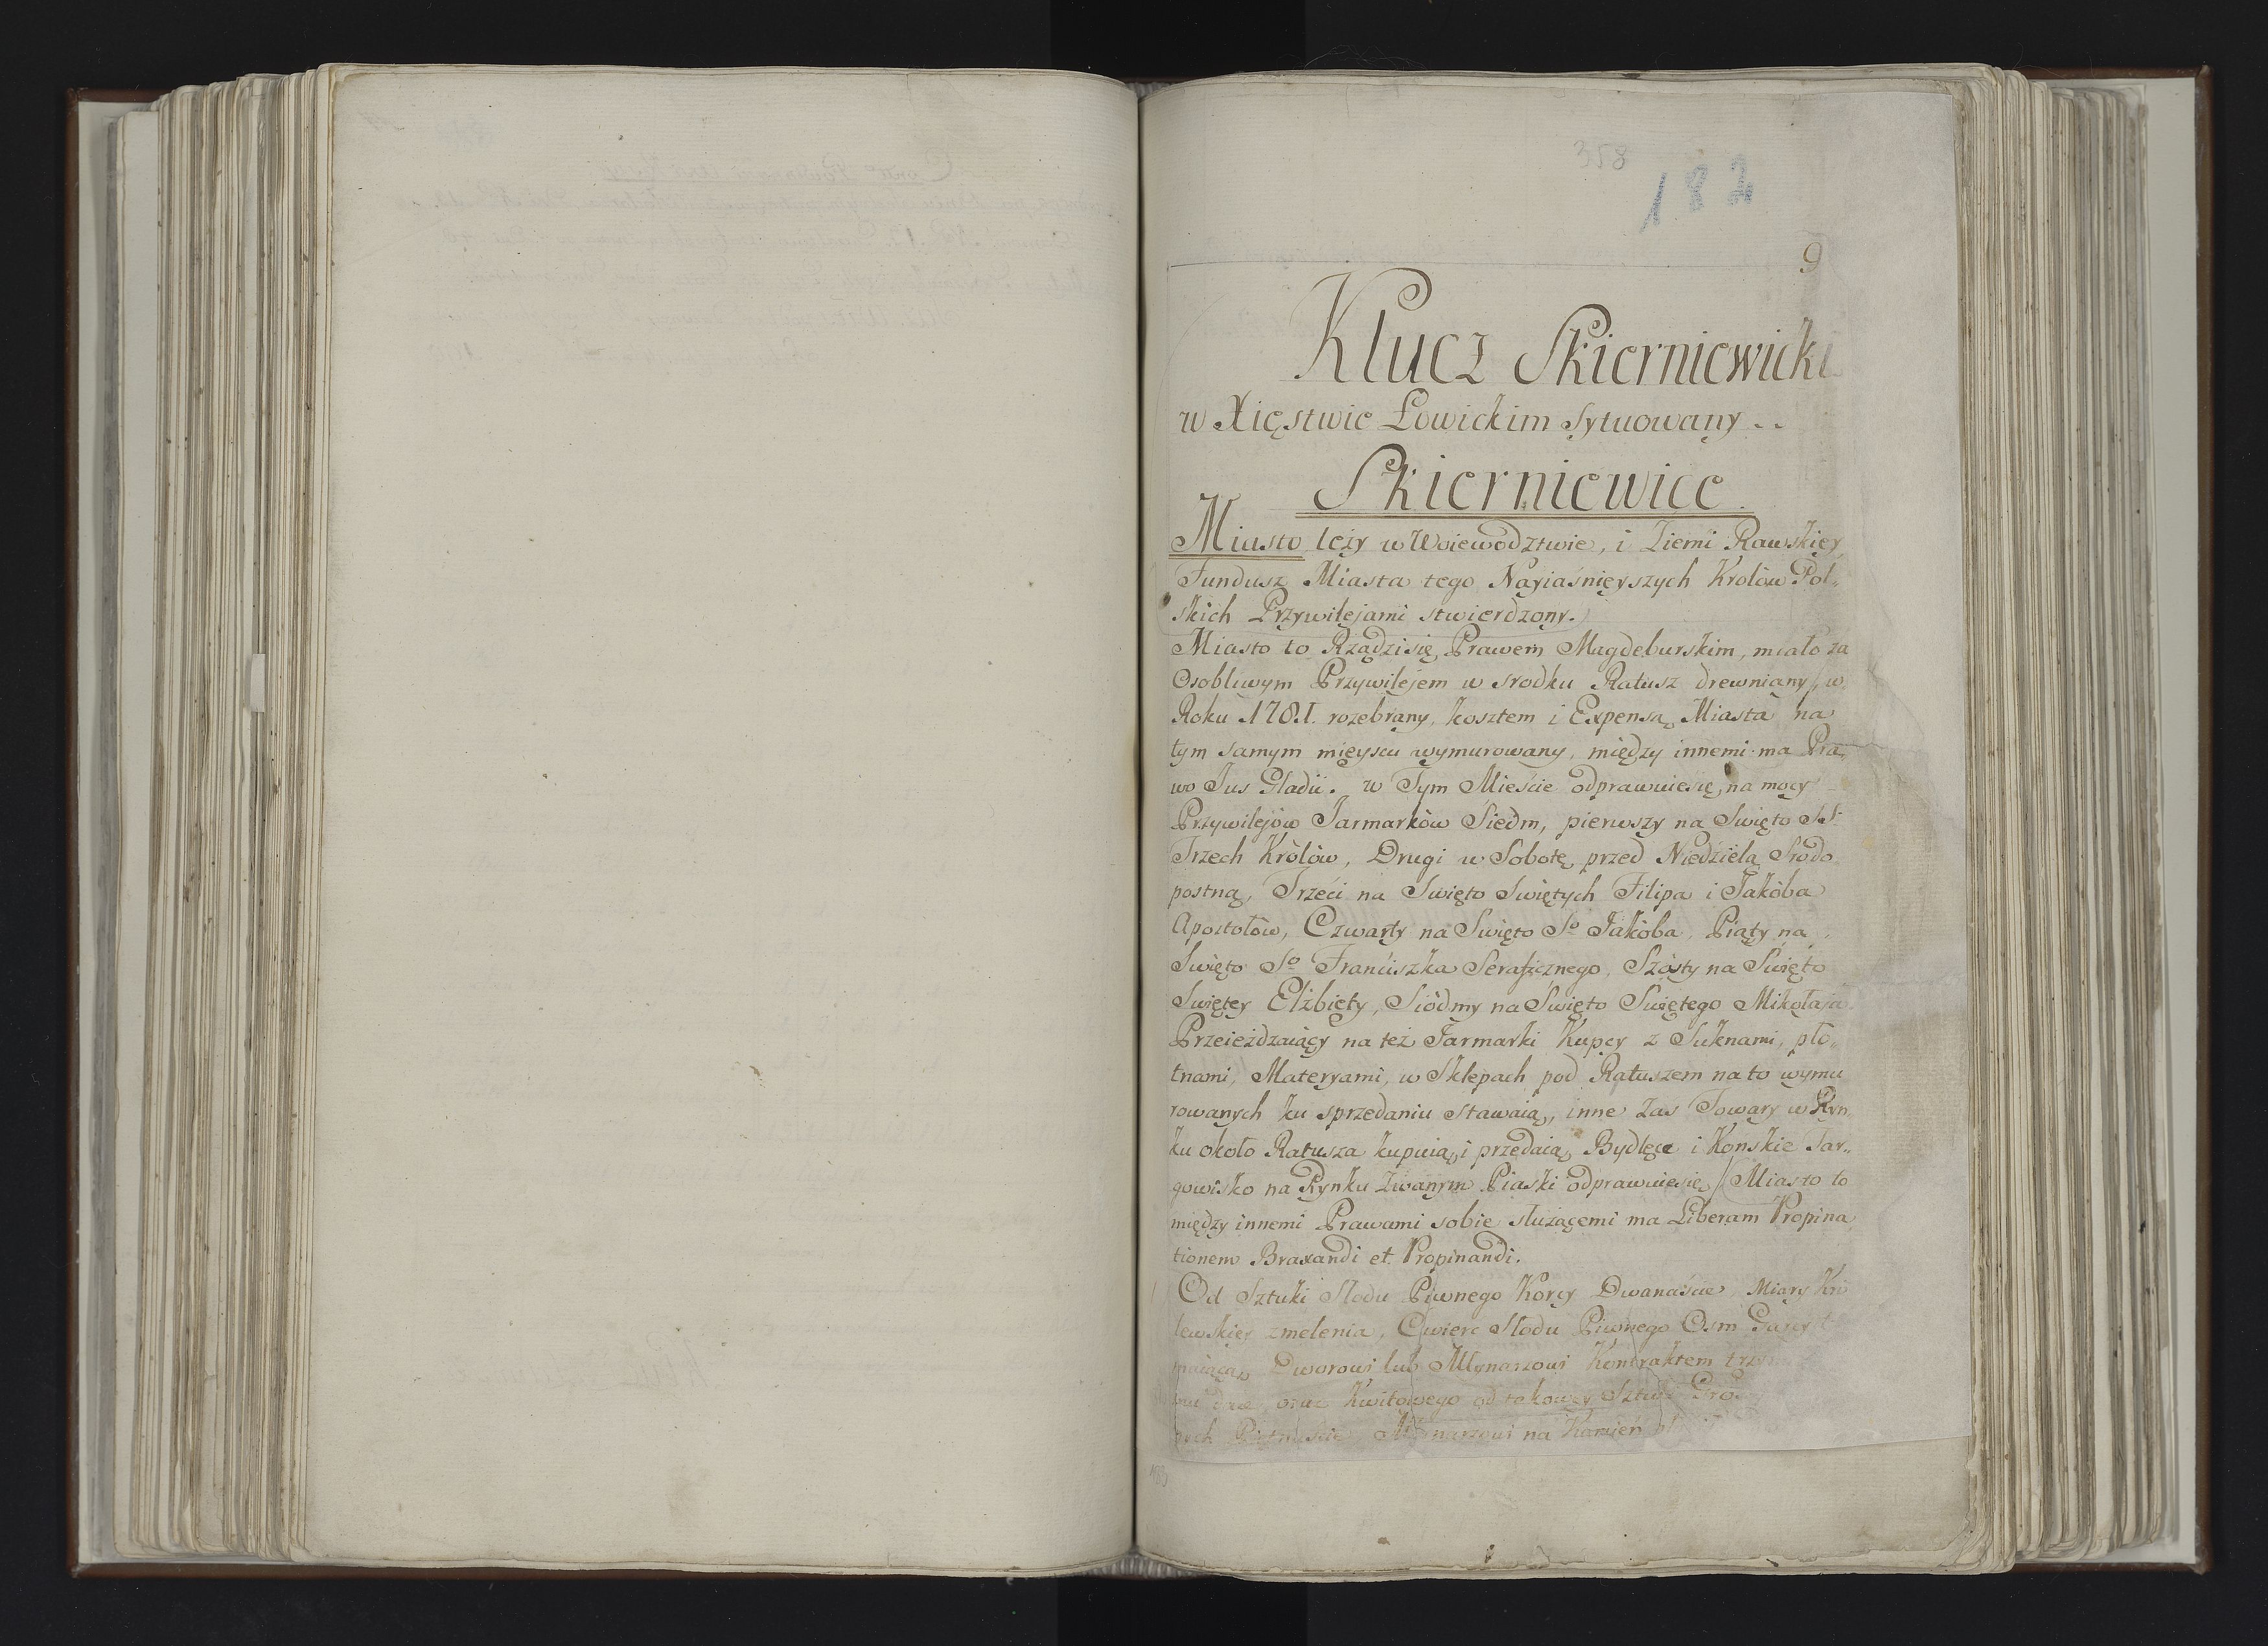 358
182
9
Klucz Skierniewicki
w Xięstwie Łowickim Sytuowany ..
Skierniewice
Miasto leży w Woiewodztwie, i Ziemi Rawskiey,
Fundusz Miasta tego Nayiaśnięyszych Krolów Pol„
skich Przywilejami stwierdzony.
Miasto to Rządzisię Prawem Magdeburskim, miało za
Osobliwym Przywilejem w srodku Ratusz drewniany, w
Roku 1781. rozebrany, kosztem i Expensą Miasta na
tym samym mięyscu wymurowany, między innemi ma Pra„
wo Jus Gladii. w Tym Mieście odprawuiesię, na mocy
Przywilejów Jarmarków Siedm, pierwszy na Swięto SS.
Trzech Królów, Drugi w Sobotę przed Niedzielą Srodo
postną, Trzeci na Swięto Swiętych Filipa i Jakóba
Apostołów, Czwarty na Swięto So Jakóba, Piąty na
Swięto So Franciszka Serafícznego, Szósty na Swięto
Swiętey Elżbiety, Siódmy na Swięto Swiętego Mikołaja
Przeieżdzaiący na też Jarmarki Kupcy z Suknami, pło„
tnami, Materyami, w Sklepach pod Ratuszem na to wymu
rowanych ku sprzedaniu stawaią, inne Zas Towary w Ryn
ku około Ratusza kupuią, i przedaią, Bydlęce i Konskie Tar„
gowisko na Rynku Zwanym Piaski odprawuiesię, Miasto to
między innemi Prawami sobie służącemi ma Liberam Propina
tionem Braxandi et Propinandi.
Od Sztuki Słodu Piwnego Korcy Dwanaście Miary Kró
lewskiey zmelenia, Cwierc Słodu Piwnego Osm Garcy
maiącą, Dworowi lub Młynarzowi Kontraktem
oraz Kwitowego od takowey Sztuki Gro
Piętnaście, Młynarzowi na Kamień
183